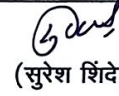 (सुरेश शिंदे